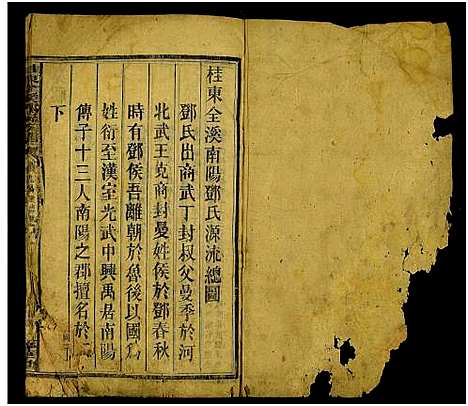 桂東全溪南陽鄧氏源流總圖
鄧氏出商武丁封叔父曼季於河
北武王克商封曼姓侯於鄧春秋
時有鄧侯吾離朝於魯後以國爲
姓衍至漢室光武中興禹居南陽
傳子十三人南陽之郡擅名於
下